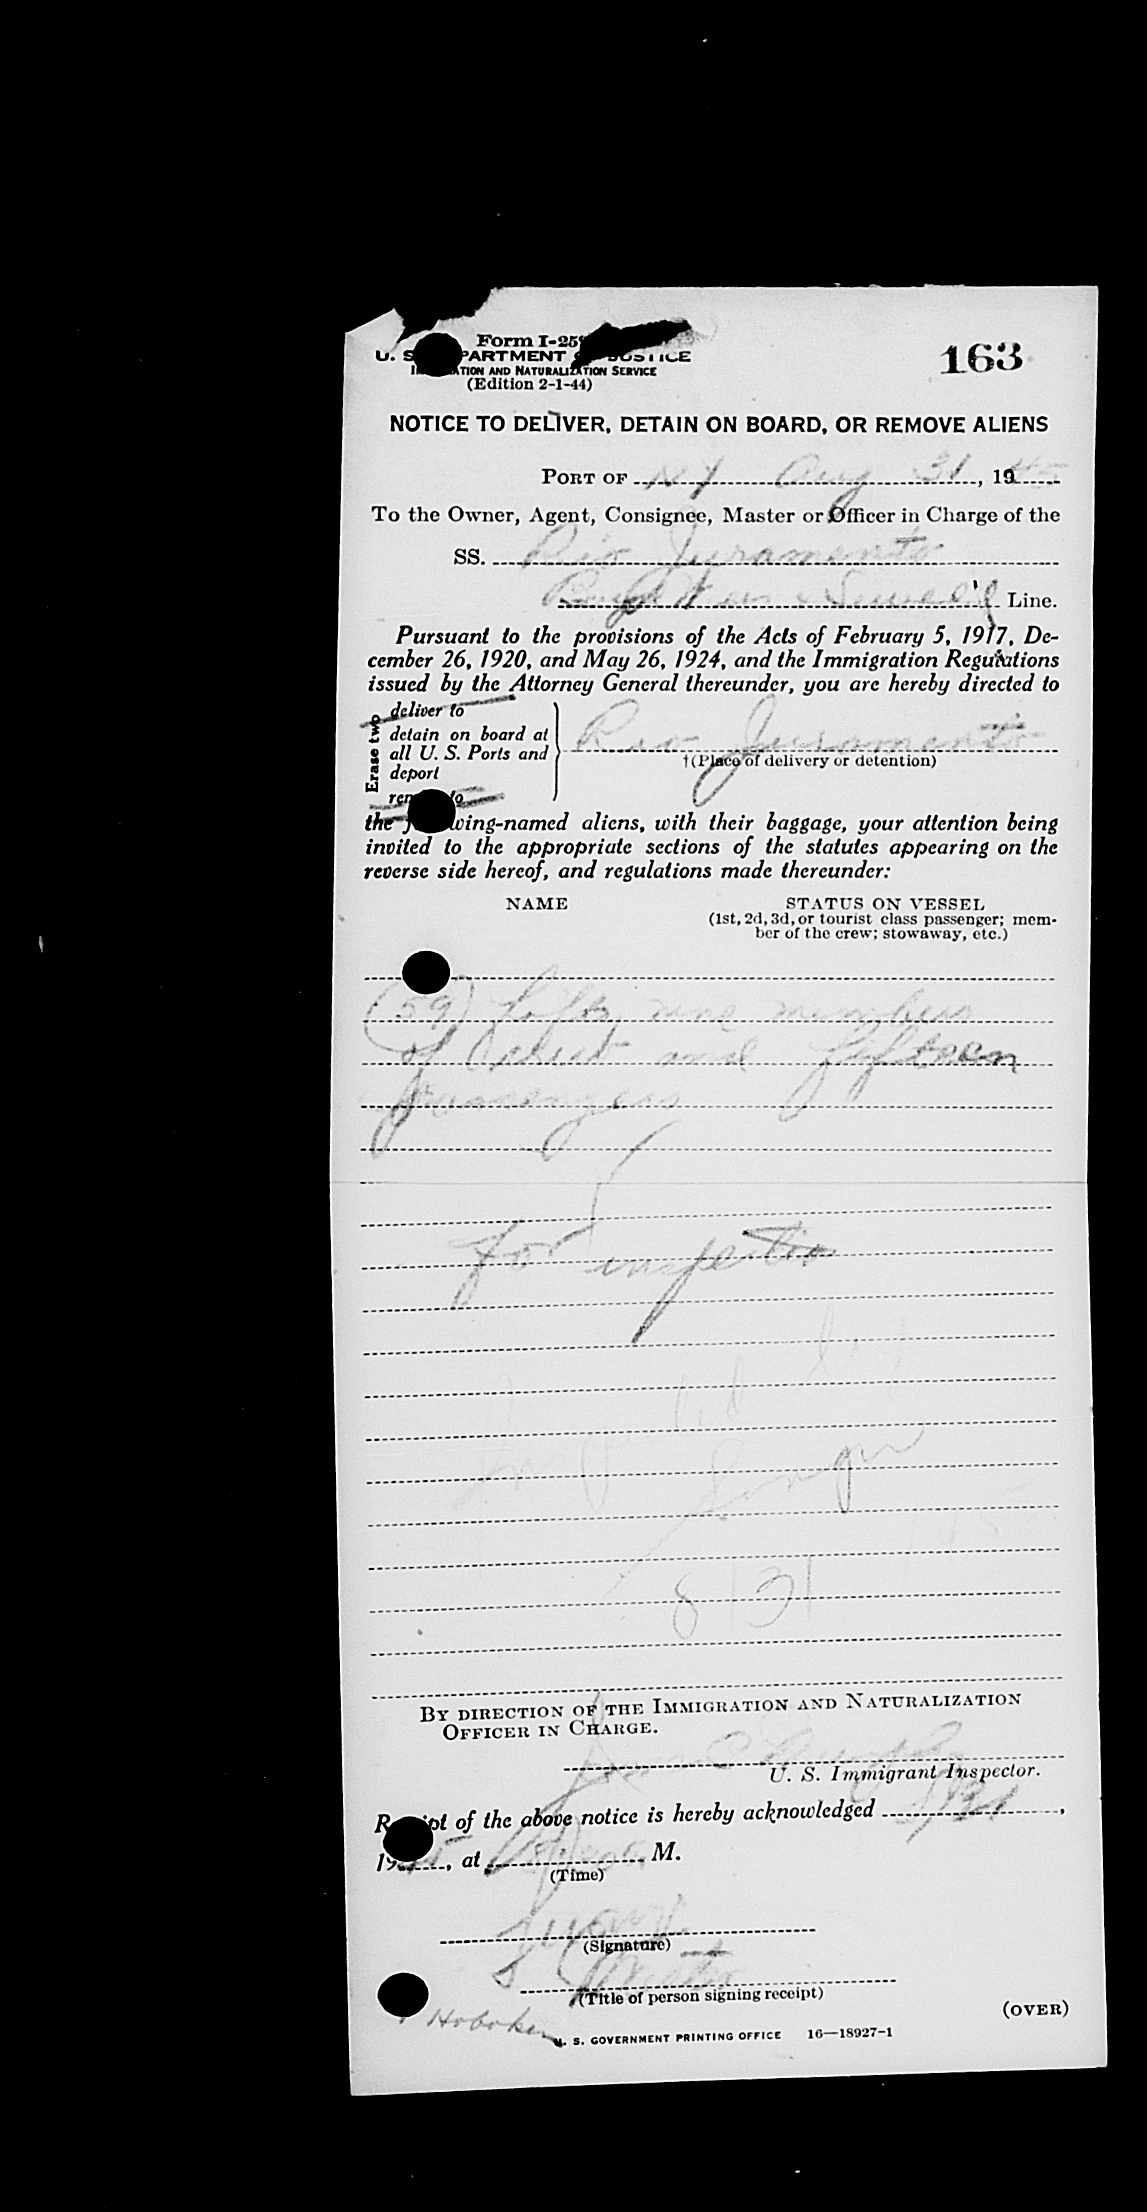 Form I-259
U. S. DEPARTMENT OF JUSTICE
IMMIGRATION AND NATURALIZATION SERVICE
(Edition 2-1-44)
163
NOTICE TO DELIVER, DETAIN ON BOARD, OR REMOVE ALIENS
PORT OF NY Aug 31, 1945
To the Owner, Agent, Consignee, Master or Officer in Charge of the
SS. Rio Juramento
Line.
Pursuant to the provisions of the Acts of February 5, 1917, De-
cember 26, 1920, and May 26, 1924, and the Immigration Regulations
issued by the Attorney General thereunder, you are hereby directed to
Erase two
deliver to
detain on board at
all U. S. Ports and
deport
remove to
Rio Juramento
†(Place of delivery or detention)
the following-named aliens, with their baggage, your attention being
invited to the appropriate sections of the statutes appearing on the
reverse side hereof, and regulations made thereunder:
NAME
STATUS ON VESSEL
(1st, 2d, 3d, or tourist class passenger; mem-
ber of the crew; stowaway, etc.)
(59) fifty nine members
of and fifteen
passengers
for inspection
8/31
BY DIRECTION OF THE IMMIGRATION AND NATURALIZATION
OFFICER IN CHARGE.
U. S. Immigrant Inspector.
Receipt of the above notice is hereby acknowledged 8/31,
1945, at M.
(Time)
(Signature)
Master
(Title of person signing receipt)
Hoboken
(OVER)
U. S. GOVERNMENT PRINTING OFFICE 16—18927-1